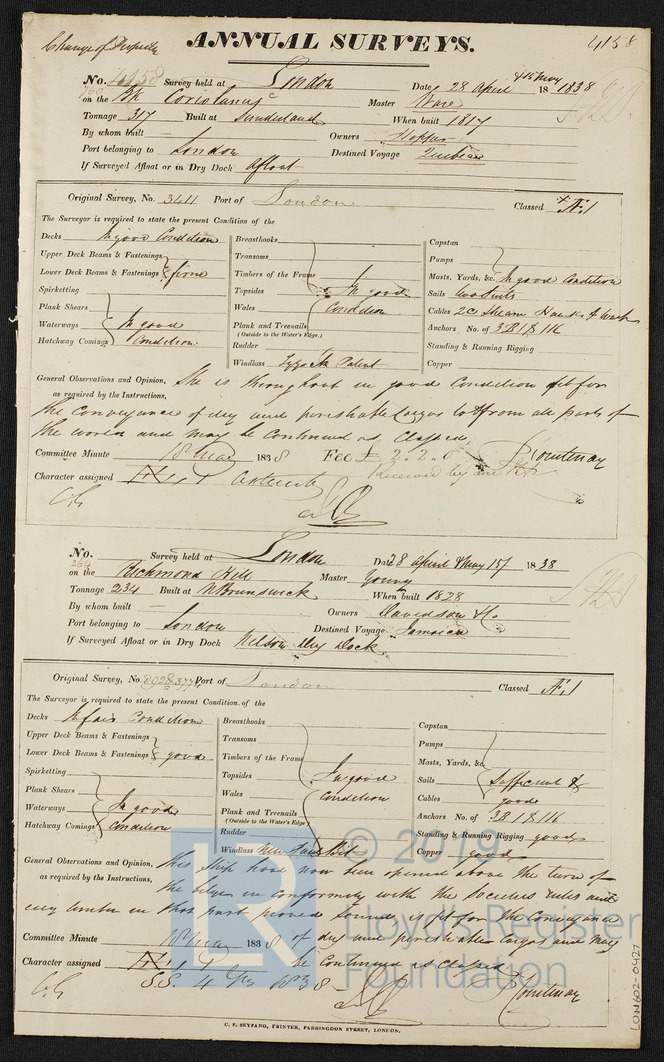 Change of Property
ANNUAL SURVEYS.
4158
No. Survey held at London Date 28 April & 15 May 18 1838
760
on the Bk Coriolanus Master Ware
Tonnage 317 Built at Sunderland When built 1817
By whom built — Owners Hopper
Port belonging to London Destined Voyage Quebec
If Surveyed Afloat or in Dry Dock Afloat
Original Survey, No. 3411 Port of London Classed Æ.1
The Surveyor is required to state the present Condition of the
Decks In good Condition
Upper Deck Beams & Fastenings
Lower Deck Beams & Fastenings firm
Spirketting
Plank Shears
Waterways In good
Hatchway Comings Condition.
Breasthooks
Transoms
Timbers of the Frame
Topsides In good
Wales Condition
Plank and Treenails
(Outside to the Water's Edge.)
Rudder
Windlass Patent
Capstan
Pumps
Masts, Yards, &c. In good Condition
Sails two Suits
Cables 2 C Stream Hawser & Warps
Anchors No. of 3B 1S 1K
Standing & Running Rigging
Copper
General Observations and Opinion, She is throughout in good Condition fit for
as required by the Instructions,
the conveyance of dry and perishable Cargos to & from all parts of
the world and may be continued as Classed.
Committee Minute 18 May 1838 Fee £ 2.2.0 Courtenay
Received by me
Character assigned Æ 1
London
No. Survey held at London Date 28 April & May 15th 1838
264
on the Richmond Hill Master Young
Tonnage 234 Built at N Brunswick When built 1828
By whom built — Owners Davidson & Co.
Port belonging to London Destined Voyage Jamaica
If Surveyed Afloat or in Dry Dock Nelson Dry Dock
Original Survey, No. Port of London Classed Æ.1
The Surveyor is required to state the present Condition of the
Decks In fair Condition
Upper Deck Beams & Fastenings
Lower Deck Beams & Fastenings good
Spirketting
Plank Shears
Waterways In good
Hatchway Comings Condition
Breasthooks
Transoms
Timbers of the Frame
Topsides In good
Wales Condition
Plank and Treenails
(Outside to the Water's Edge.)
Rudder
Windlass New
Capstan
Pumps
Masts, Yards, &c.
Sails Sufficient &
Cables good
Anchors No. of 3B 1S 1K
Standing & Running Rigging good
Copper good
General Observations and Opinion, This Ship have now been opened above the turn of
as required by the Instructions, the bilge in conformity with the Societies rules and
evry timber in that part proved sound, is fit for the conveyance
Committee Minute 18 May 1838 of dry and perishable Cargos and may
Character assigned Æ 1 be continued as Classed
S.S. 4 Yrs 1838 Courtenay
C. F. SEYFANG, PRINTER, FARRINGDON STREET, LONDON.
LON602-0427
© 2019
LR
Lloyd's Register
Foundation